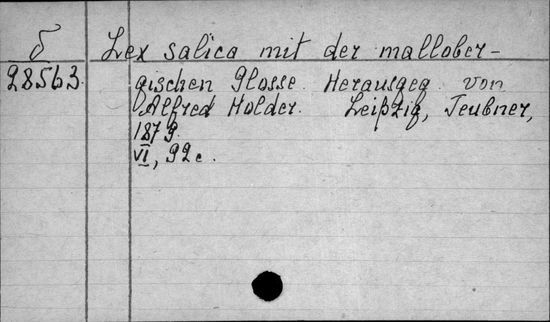 δ
Lex salica mit der mallober-
28563.
gischen Glosse. Herausgeg. von
Alfred Holder. Leipzig, Teubner,
1879.
VI, 92 c.